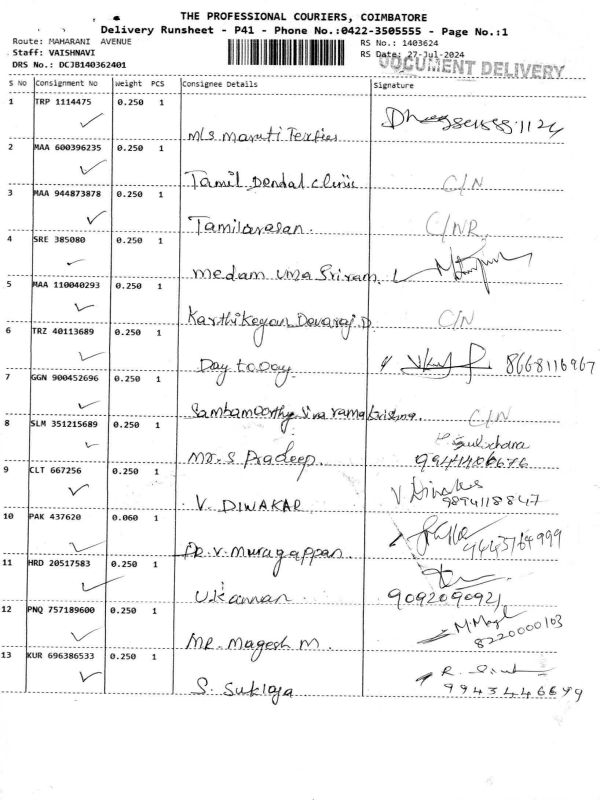 THE PROFESSIONAL COURIERS, COIMBATORE
Delivery Runsheet - P41 - Phone No.:0422-3505555 - Page No.:1
Route: MAHARANI AVENUE RS No.: 1403624
Staff: VAISHNAVI RS Date: 27-Jul-2024
DOCUMENT DELIVERY
DRS No.: DCJB140362401
S No Consignment No Weight PCS Consignee Details Signature
1 TRP 1114475 0.250 1
M/s Maruti Texfies
2 MAA 600396235 0.250 1
Tamil Dendal clinic C/N
3 MAA 944873878 0.250 1
Tamilarasan. C/NR
4 SRE 385080 0.250 1
medam uma Sriram
5 MAA 110040293 0.250 1
Karthikeyan Devaraj.D C/N
6 TRZ 40113689 0.250 1
Day today 8668116967
7 GGN 900452696 0.250 1
Sambamoorthy Siva ramakrishna. C/N
8 SLM 351215689 0.250 1
Mr. S Pradeep.
9 CLT 667256 0.250 1
V. DIWAKAR V Diwakar 9894118847
10 PAK 437620 0.060 1
DR. V. Murugappan. 9443764999
11 HRD 20517583 0.250 1
U. Kannan 9092090921
12 PNQ 757189600 0.250 1
MR. Magesh M. 8220000103
13 KUR 696386533 0.250 1
S. Sukioja 9943446699